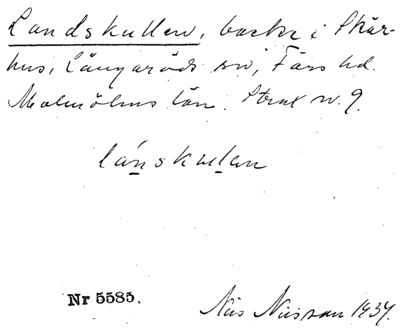 Landskullen, backe i Skår-
hus, Långaröds sn, Färs hd.
Malmöhus län. Strax n. 9.
lánskulen
Nr 5585.
Nils Nilsson 1934.